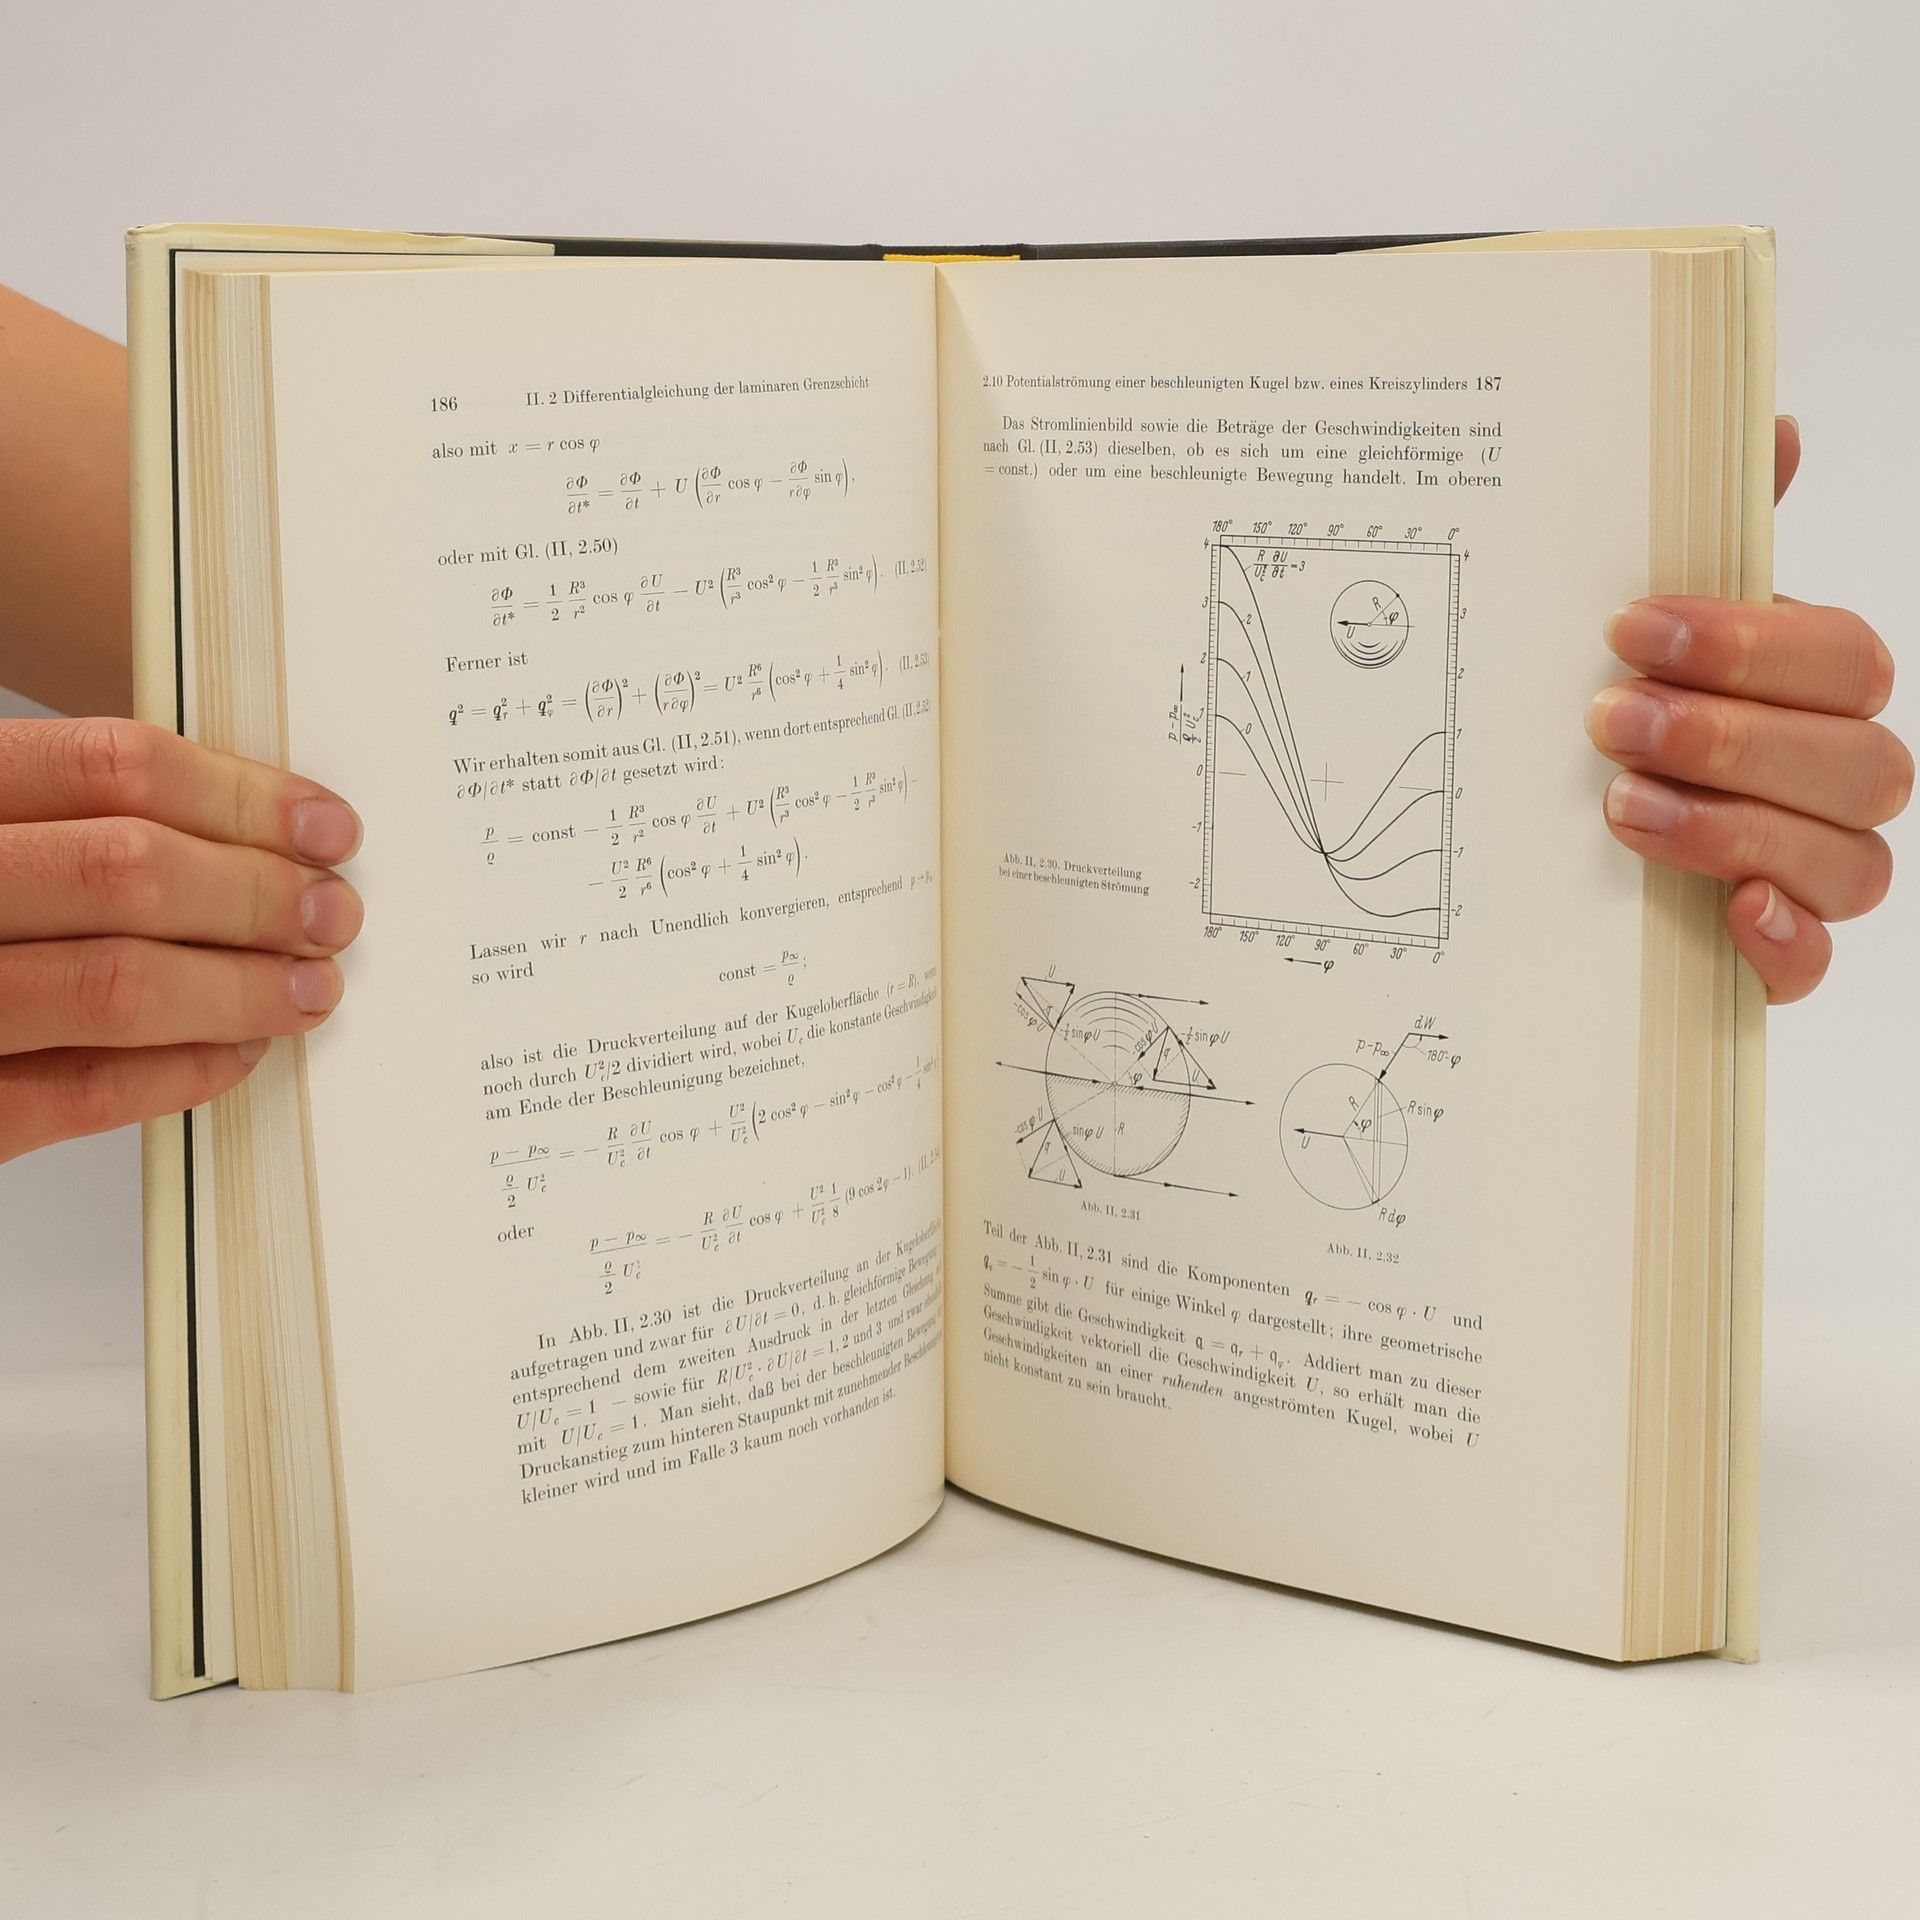 186 II. 2 Differentialgleichung der laminaren Grenzschicht
also mit x = r cos φ
∂Φ/∂t* = ∂Φ/∂t + U (∂Φ/∂r cos φ − ∂Φ/r∂φ sin φ),
oder mit Gl. (II, 2.50)
∂Φ/∂t* = 1/2 R³/r² cos φ ∂U/∂t − U² (R³/r³ cos² φ − 1/2 R³/r³ sin² φ). (II, 2.52)
Ferner ist
q² = q_r² + q_φ² = (∂Φ/∂r)² + (∂Φ/r∂φ)² = U² R⁶/r⁶ (cos² φ + 1/4 sin² φ). (II, 2.53)
Wir erhalten somit aus Gl. (II, 2.51), wenn dort entsprechend Gl. (II, 2.52)
∂Φ/∂t* statt ∂Φ/∂t gesetzt wird:
p/ϱ = const − 1/2 R³/r² cos φ ∂U/∂t + U² (R³/r³ cos² φ − 1/2 R³/r³ sin² φ) −
− U²/2 R⁶/r⁶ (cos² φ + 1/4 sin² φ).
Lassen wir r nach Unendlich konvergieren, entsprechend p → p∞
so wird
const = p∞/ϱ;
also ist die Druckverteilung auf der Kugeloberfläche (r = R), wenn
noch durch U_c²/2 dividiert wird, wobei U_c die konstante Geschwindigkeit
am Ende der Beschleunigung bezeichnet,
(p − p∞)/(ϱ/2 U_c²) = − R/U_c² ∂U/∂t cos φ + U²/U_c² (2 cos² φ − sin² φ − cos² φ − 1/4 sin² φ)
oder
(p − p∞)/(ϱ/2 U_c²) = − R/U_c² ∂U/∂t cos φ + U²/U_c² 1/8 (9 cos 2φ − 1). (II, 2.54)
In Abb. II, 2.30 ist die Druckverteilung an der Kugeloberfläche
aufgetragen und zwar für ∂U/∂t = 0, d. h. gleichförmige Bewegung
entsprechend dem zweiten Ausdruck in der letzten Gleichung
U/U_c = 1 — sowie für R/U_c² · ∂U/∂t = 1, 2 und 3 und zwar ebenfalls
mit U/U_c = 1. Man sieht, daß bei der beschleunigten Bewegung
Druckanstieg zum hinteren Staupunkt mit zunehmender Beschleunigung
kleiner wird und im Falle 3 kaum noch vorhanden ist.
2.10 Potentialströmung einer beschleunigten Kugel bzw. eines Kreiszylinders 187
Das Stromlinienbild sowie die Beträge der Geschwindigkeiten sind
nach Gl. (II, 2.53) dieselben, ob es sich um eine gleichförmige (U
= const.) oder um eine beschleunigte Bewegung handelt. Im oberen
180° 150° 120° 90° 60° 30° 0°
4 4
R/U_c² ∂U/∂t = 3
R
φ
U
3 3
2
2 2
1
1 1
(p − p∞)/(ϱ/2 U_c²)
0
0 0
-1 -1
-2 -2
180° 150° 120° 90° 60° 30° 0°
φ
Abb. II, 2.30. Druckverteilung
bei einer beschleunigten Strömung
U
-cos φ U
q
-½ sin φ U
-cos φ U
-½ sin φ U
q
U
φ
-cos φ U
sin φ U
R
q
U
Abb. II, 2.31
dW
p-p∞
180°-φ
R
R sin φ
φ
U
R dφ
Abb. II, 2.32
Teil der Abb. II, 2.31 sind die Komponenten q_r = − cos φ · U und
q_φ = − 1/2 sin φ · U für einige Winkel φ dargestellt; ihre geometrische
Summe gibt die Geschwindigkeit q = q_r + q_φ. Addiert man zu dieser
Geschwindigkeit vektoriell die Geschwindigkeit U, so erhält man die
Geschwindigkeiten an einer ruhenden angeströmten Kugel, wobei U
nicht konstant zu sein braucht.